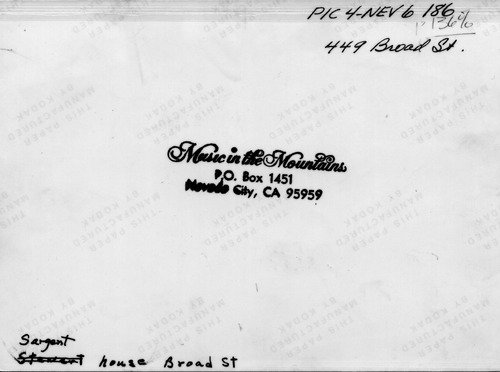 PIC 4-NEV 6 186
136%
449 Broad St.
Music in the Mountains
P.O. Box 1451
Nevada City, CA 95959
Sargent
Stewart house Broad St
THIS PAPER
MANUFACTURED
BY KODAK